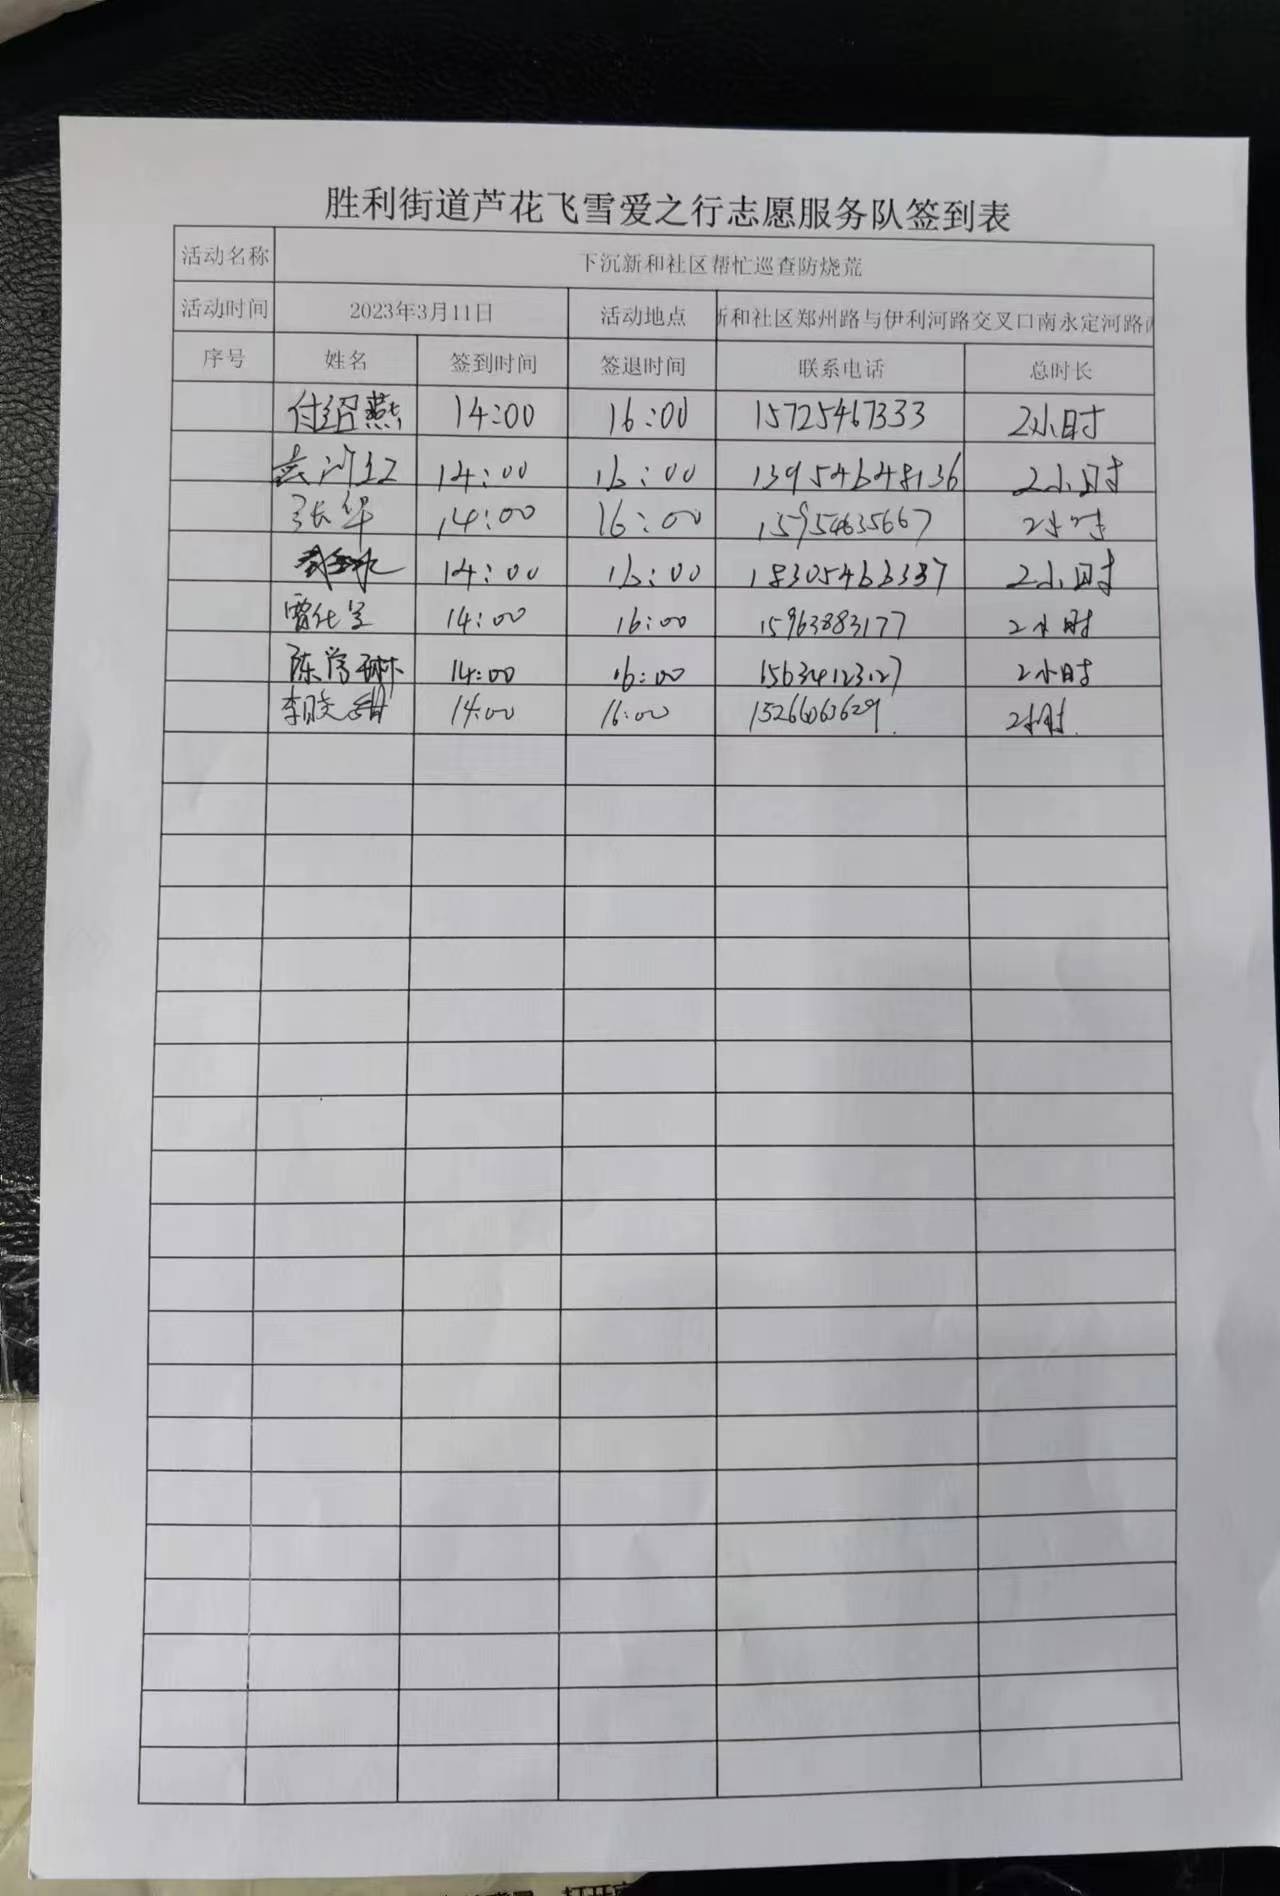 胜利街道芦花飞雪爱之行志愿服务队签到表
活动名称 下沉新和社区帮忙巡查防烧荒
活动时间 2023年3月11日 活动地点 新和社区郑州路与伊利河路交叉口南永定河路
序号 姓名 签到时间 签退时间 联系电话 总时长
付绍燕 14:00 16:00 15725467333 2小时
14:00 16:00 13954648136 2小时
张华 14:00 16:00 15954635667 2小时
14:00 16:00 18305463337 2小时
14:00 16:00 15963883177 2小时
14:00 16:00 15634123127 2小时
李晓甜 14:00 16:00 15266063629 2小时